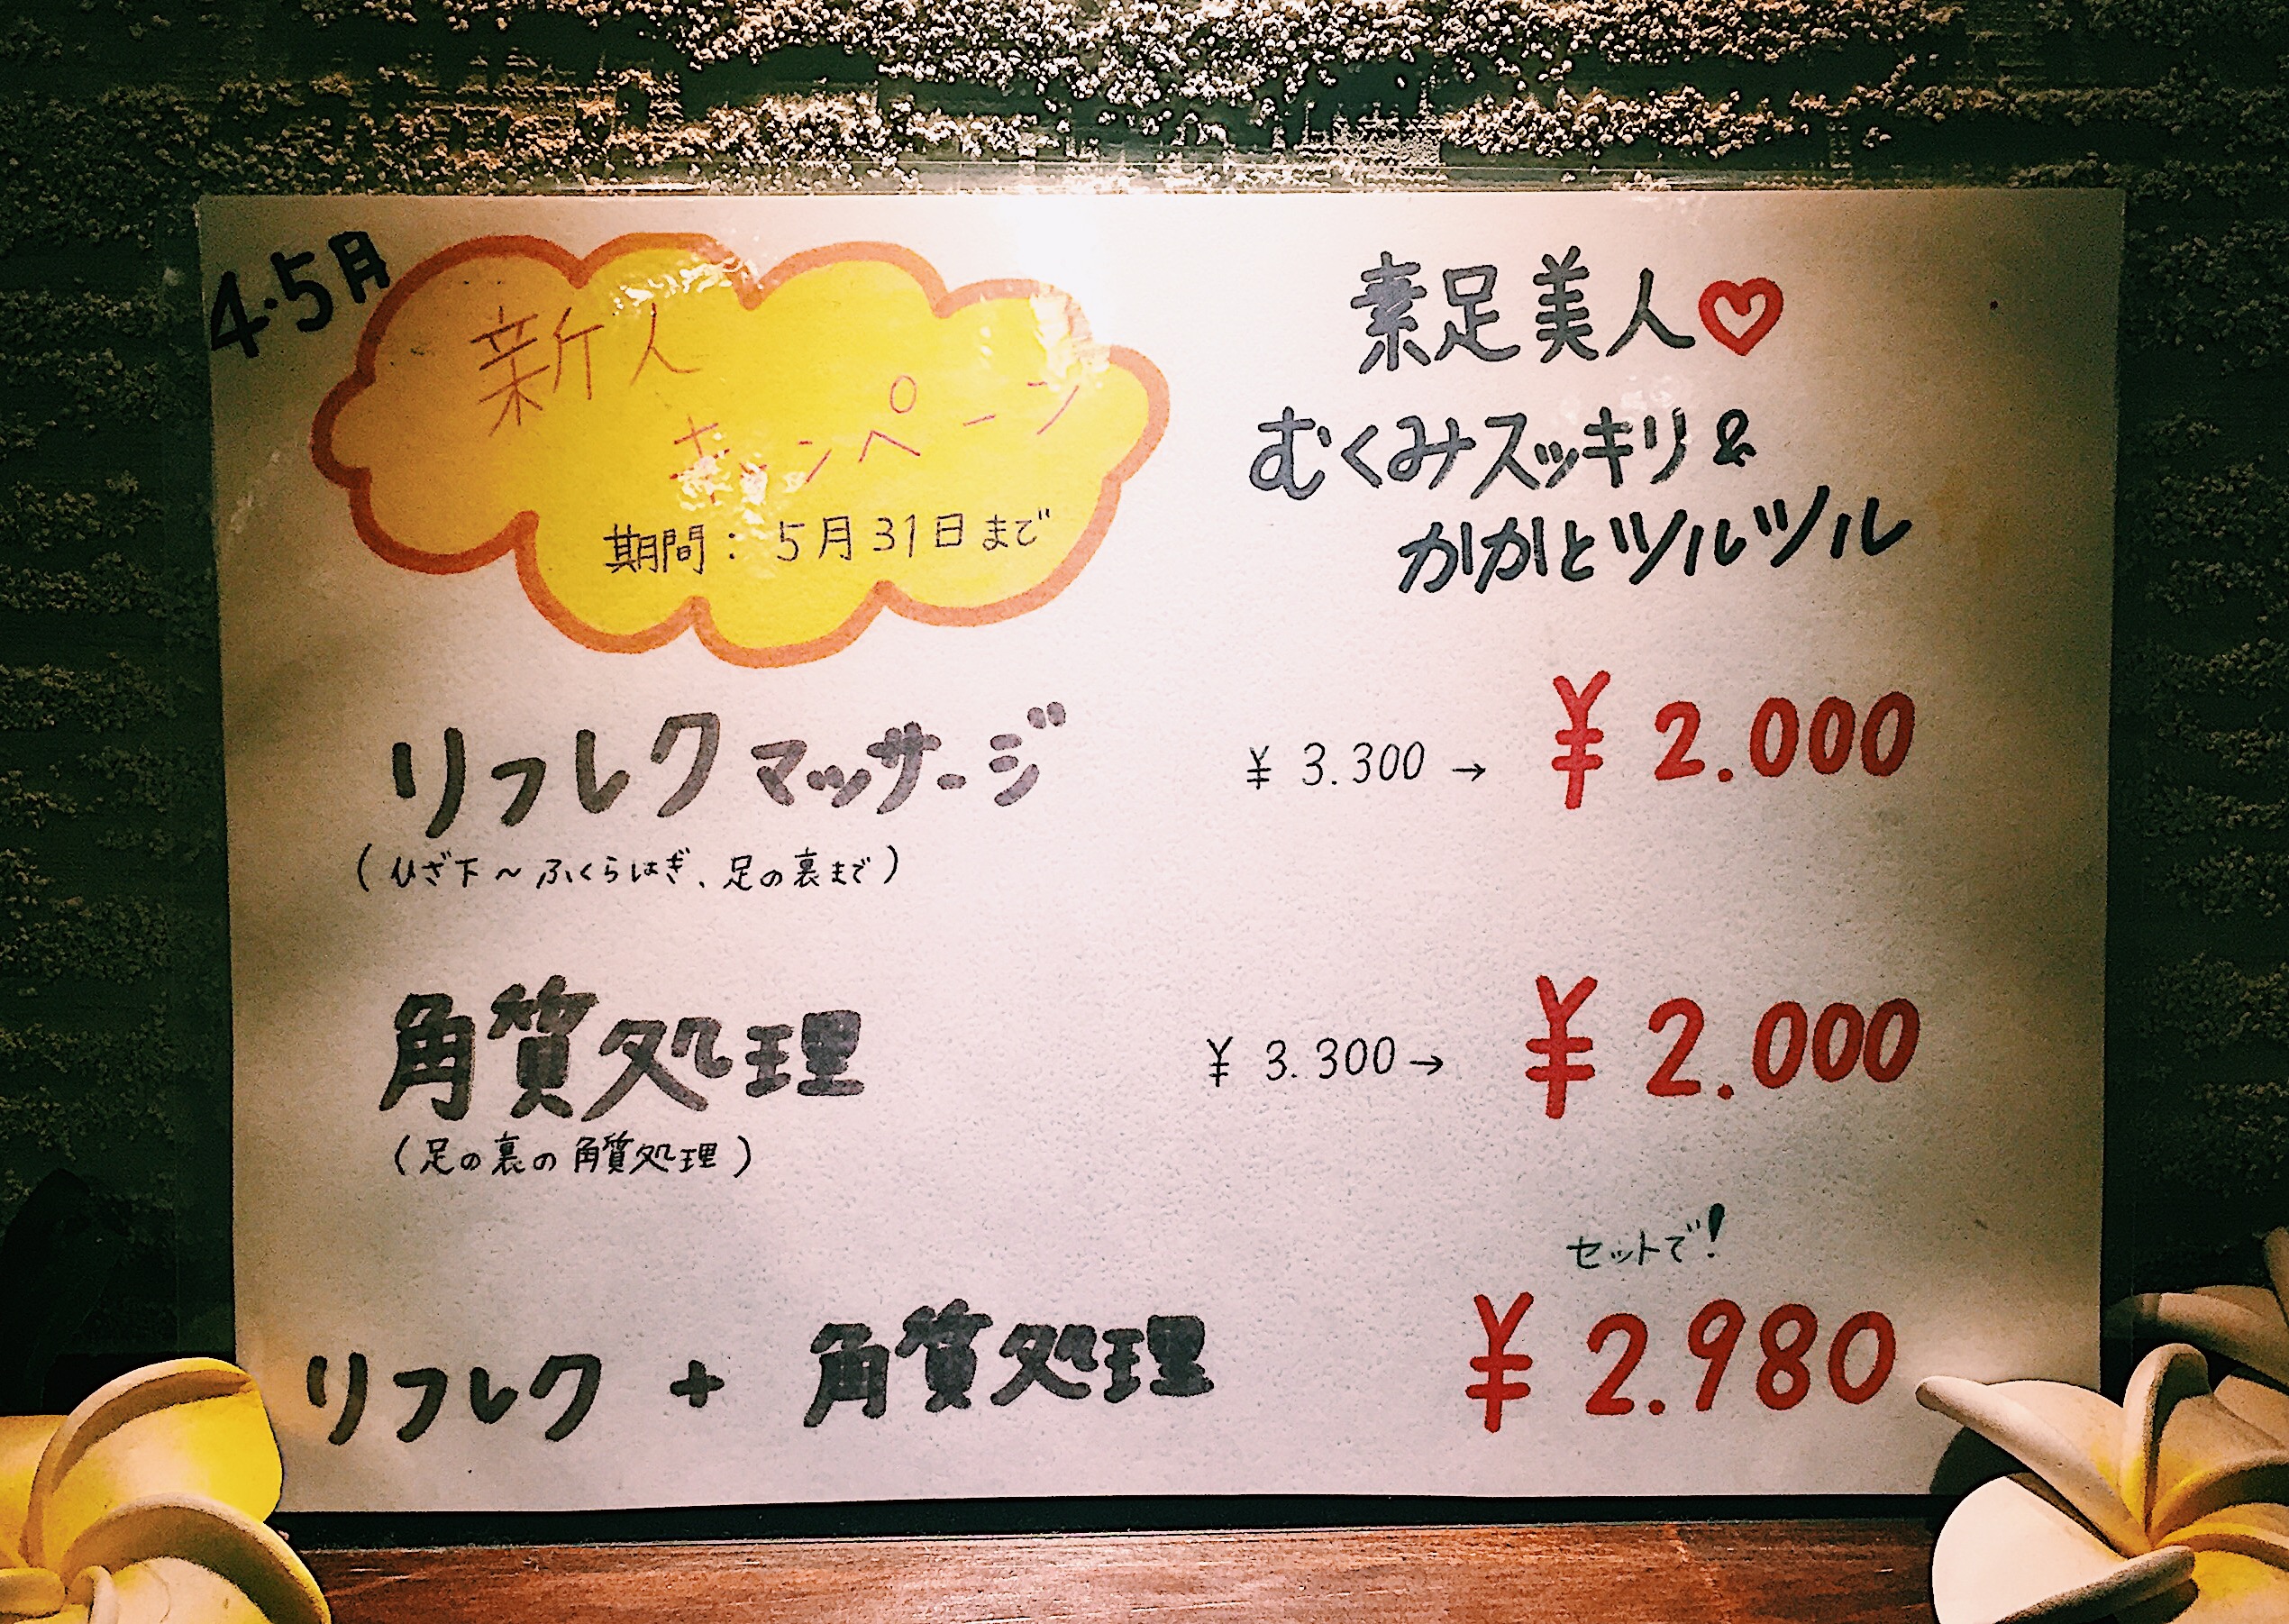 4・5月
新人
キャンペーン
期間：5月31日まで
素足美人♡
むくみスッキリ&
かかとツルツル
リフレクマッサージ ¥3.300→ ¥2.000
(ひざ下～ふくらはぎ、足の裏まで)
角質処理 ¥3.300→ ¥2.000
(足の裏の角質処理)
セットで!
リフレク + 角質処理 ¥2.980